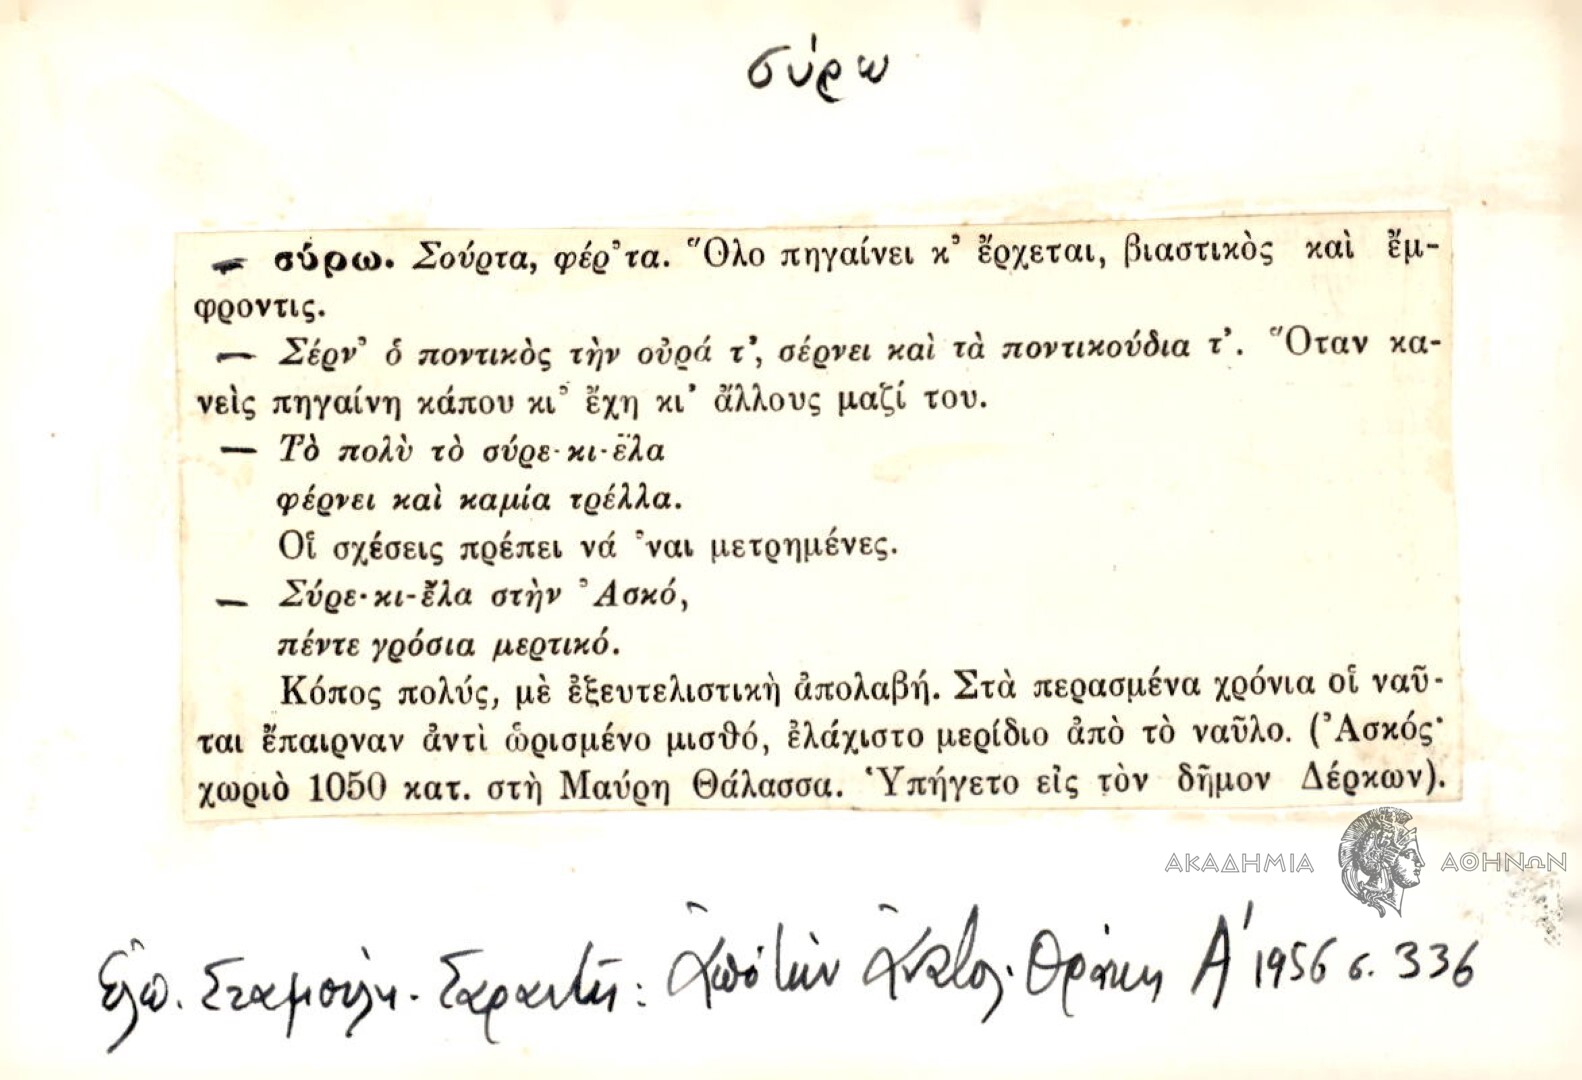 σύρω
— σύρω. Σούρτα, φέρ᾿τα. Ὅλο πηγαίνει κ᾿ ἔρχεται, βιαστικὸς καὶ ἔμ-
φροντις.
— Σέρν᾿ ὁ ποντικὸς τὴν οὐρά τ᾿, σέρνει καὶ τὰ ποντικούδια τ᾿. Ὅταν κα-
νεὶς πηγαίνη κάπου κι᾿ ἔχη κι᾿ ἄλλους μαζί του.
— Τὸ πολὺ τὸ σύρε-κι-ἔλα
φέρνει καὶ καμία τρέλλα.
Οἱ σχέσεις πρέπει νά ᾿ναι μετρημένες.
— Σύρε-κι-ἔλα στὴν Ἀσκό,
πέντε γρόσια μερτικό.
Κόπος πολύς, μὲ ἐξευτελιστικὴ ἀπολαβή. Στὰ περασμένα χρόνια οἱ ναῦ-
ται ἔπαιρναν ἀντὶ ὡρισμένο μισθό, ἐλάχιστο μερίδιο ἀπὸ τὸ ναῦλο. (Ἀσκός·
χωριὸ 1050 κατ. στὴ Μαύρη Θάλασσα. Ὑπήγετο εἰς τὸν δῆμον Δέρκων).
ΑΚΑΔΗΜΙΑ ΑΘΗΝΩΝ
Ἐλπ. Σταμούλη-Σαραντῆ: Ἀπὸ τὴν Ἀνατολ. Θράκη Α' 1956 σ. 336